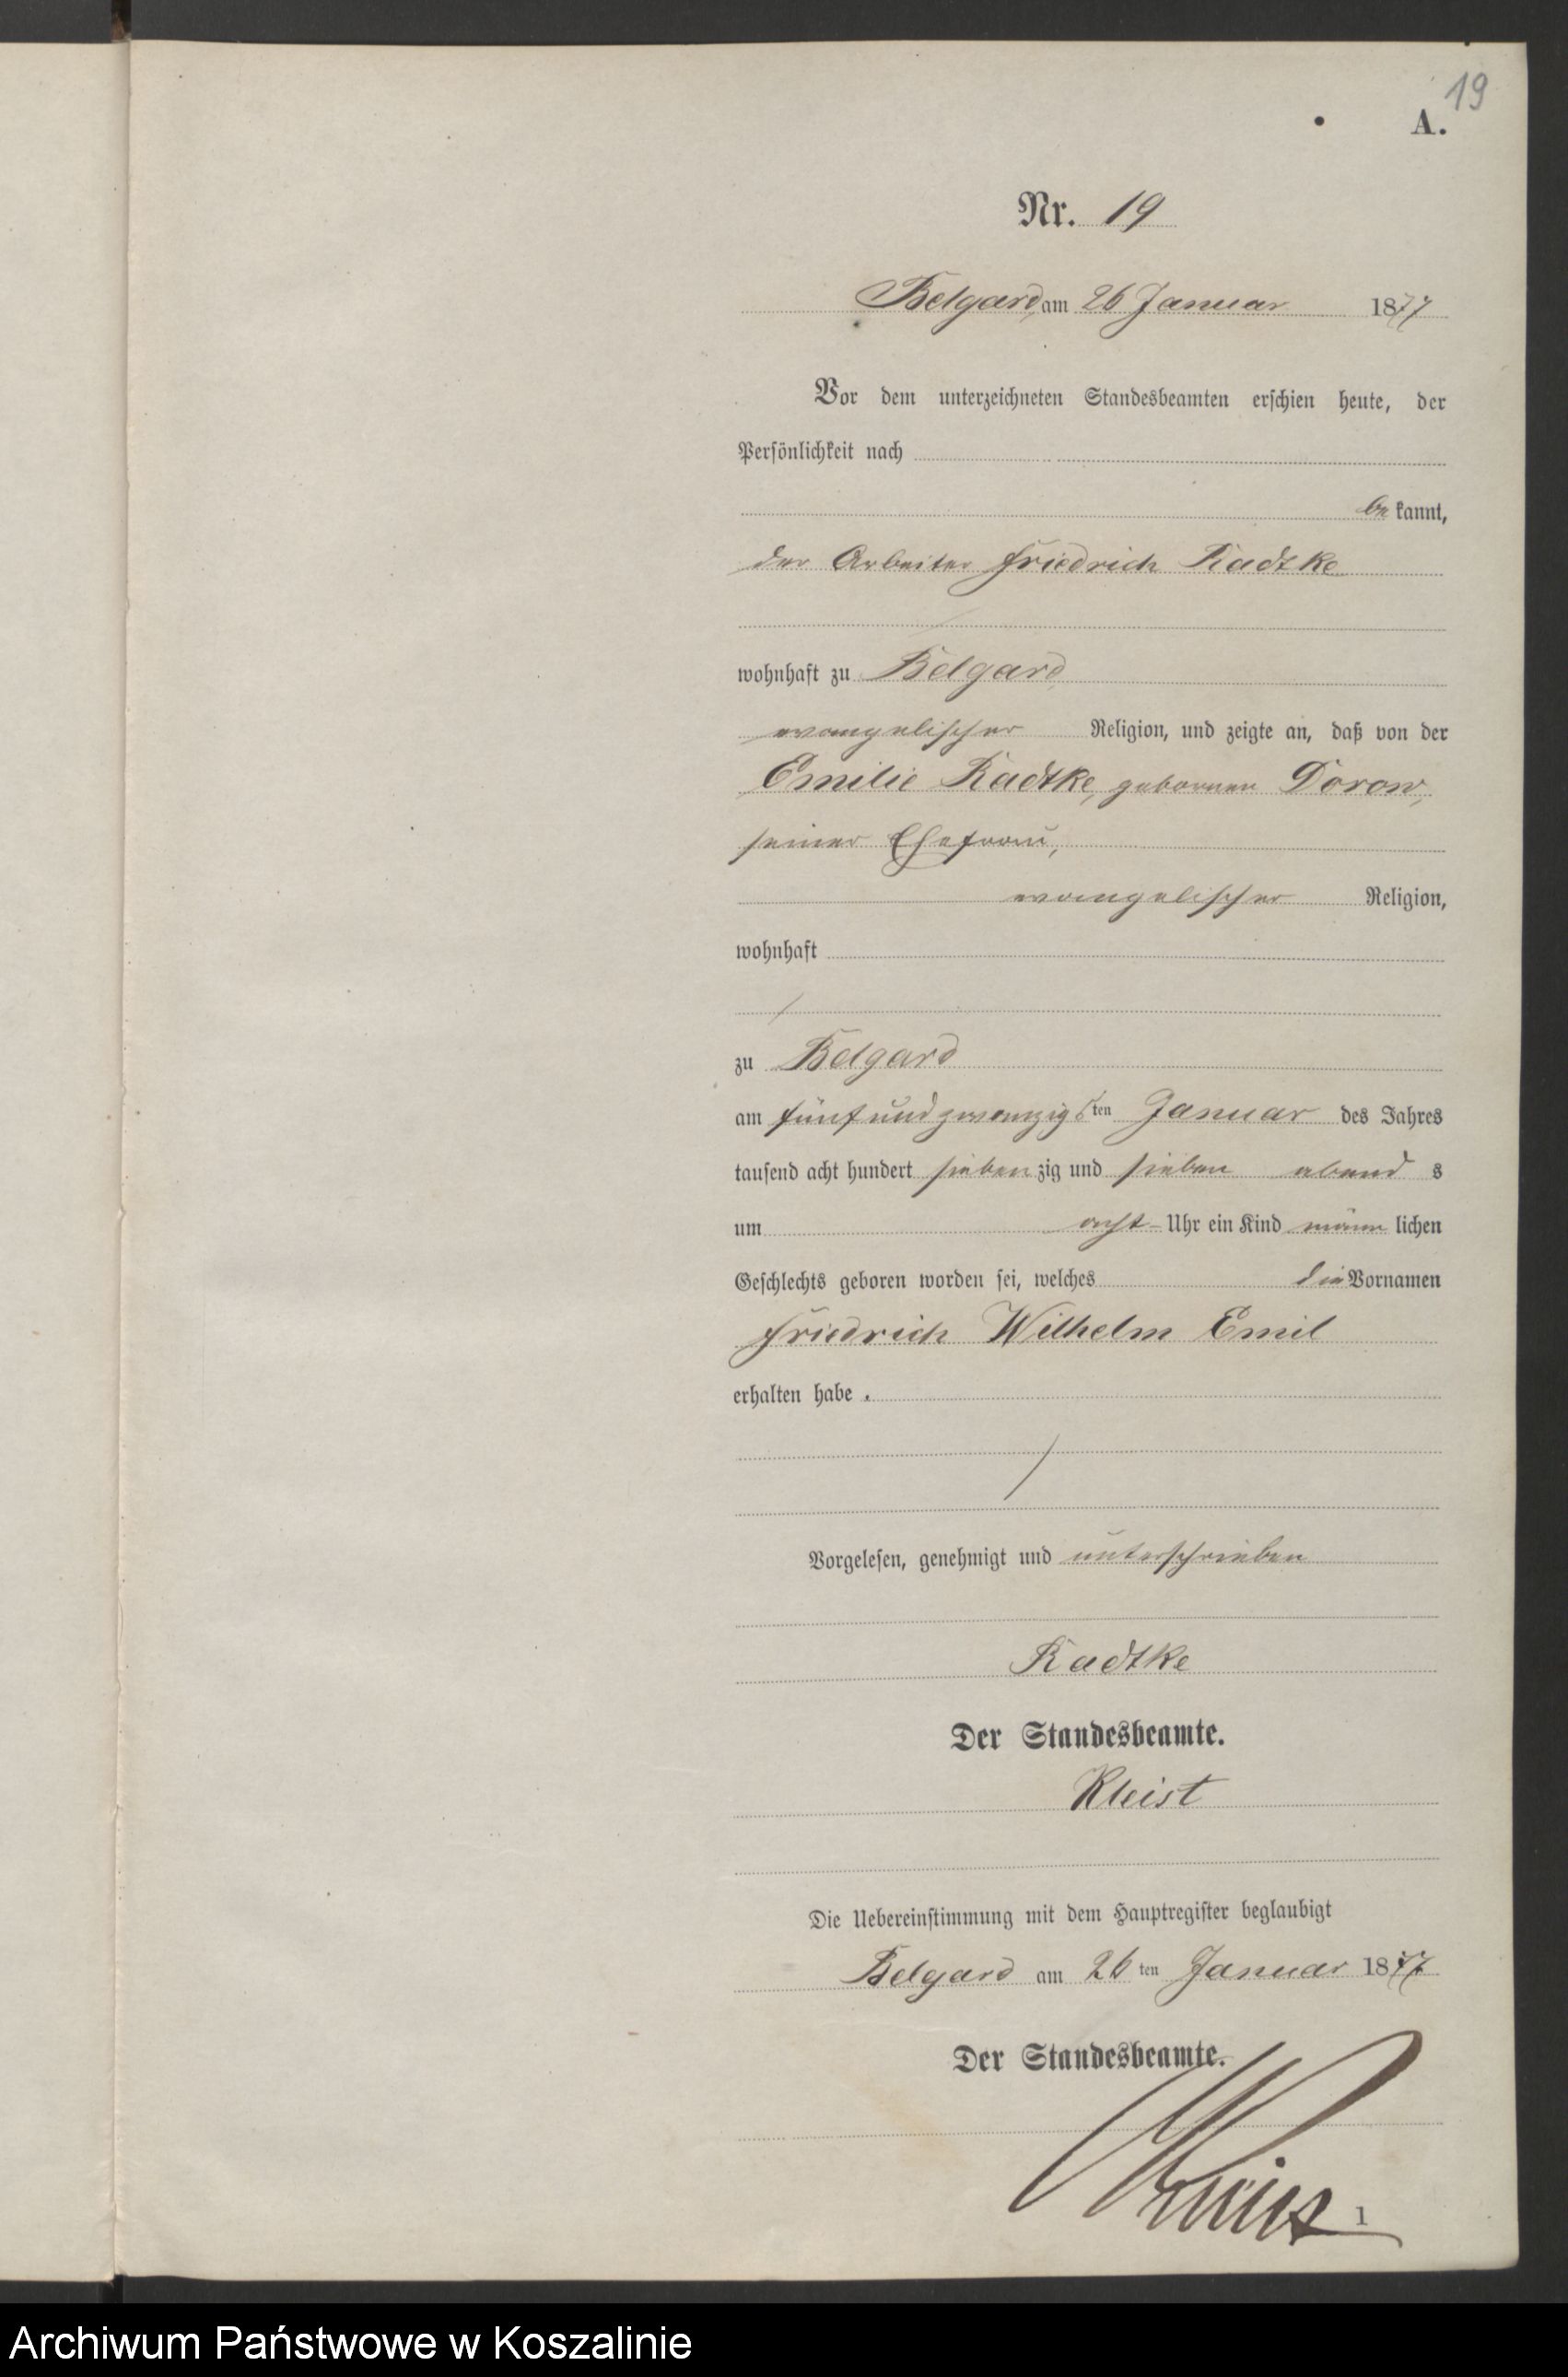 19
A.
Nr. 19
Belgard, am 26 Januar 1877
Vor dem unterzeichneten Standesbeamten erschien heute, der
Persönlichkeit nach
be kannt,
der Arbeiter Friedrich Radtke
wohnhaft zu Belgard
evangelischer Religion, und zeigte an, daß von der
Emilie Radtke, gebornen Dorow,
seiner Ehefrau,
evangelischer Religion,
wohnhaft
zu Belgard
am fünfundzwanzigsten Januar des Jahres
tausend acht hundert siebenzig und sieben abend s
um acht Uhr ein Kind männ lichen
Geschlechts geboren worden sei, welches die Vornamen
Friedrich Wilhelm Emil
erhalten habe.
Vorgelesen, genehmigt und unterschrieben
Radtke
Der Standesbeamte.
Kleist
Die Uebereinstimmung mit dem Hauptregister beglaubigt
Belgard am 26 ten Januar 1877
Der Standesbeamte.
1
Archiwum Państwowe w Koszalinie